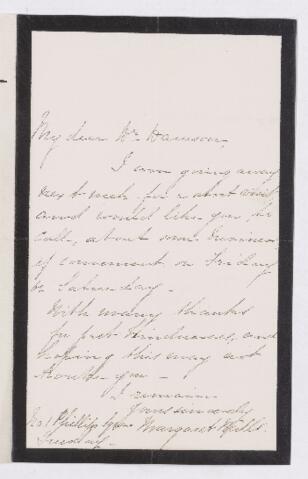 My dear Mr Hanson,
I am going away
next week for a short visit
and would like you to
call, about our business
if convenient on Friday
or Saturday.
With many thanks
for past kindnesses, and
hoping this may not
trouble you
I remain
Yours sincerely
Margaret
No 1 Phillips Sqre
Tuesday